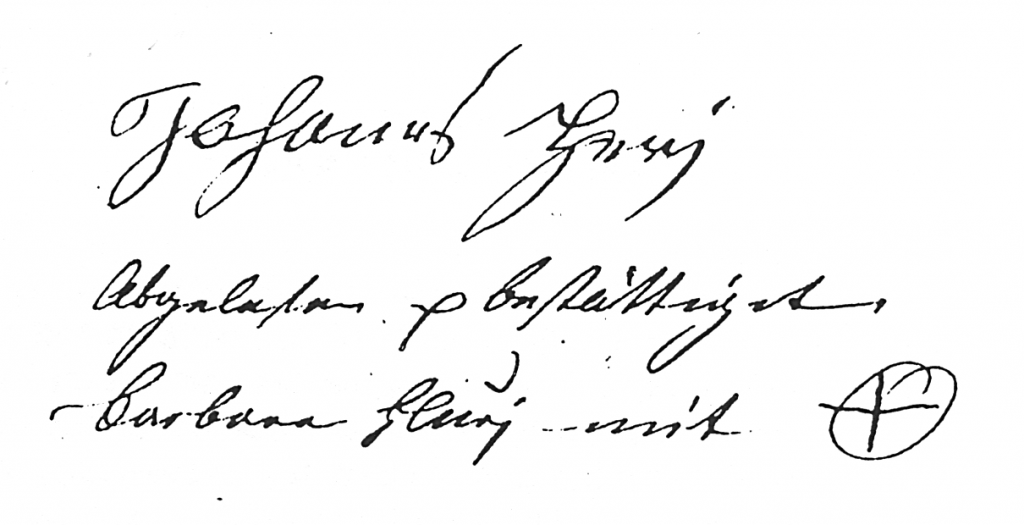 Johannes
Abgelesen & bestättiget.
Barbara Flurj mit